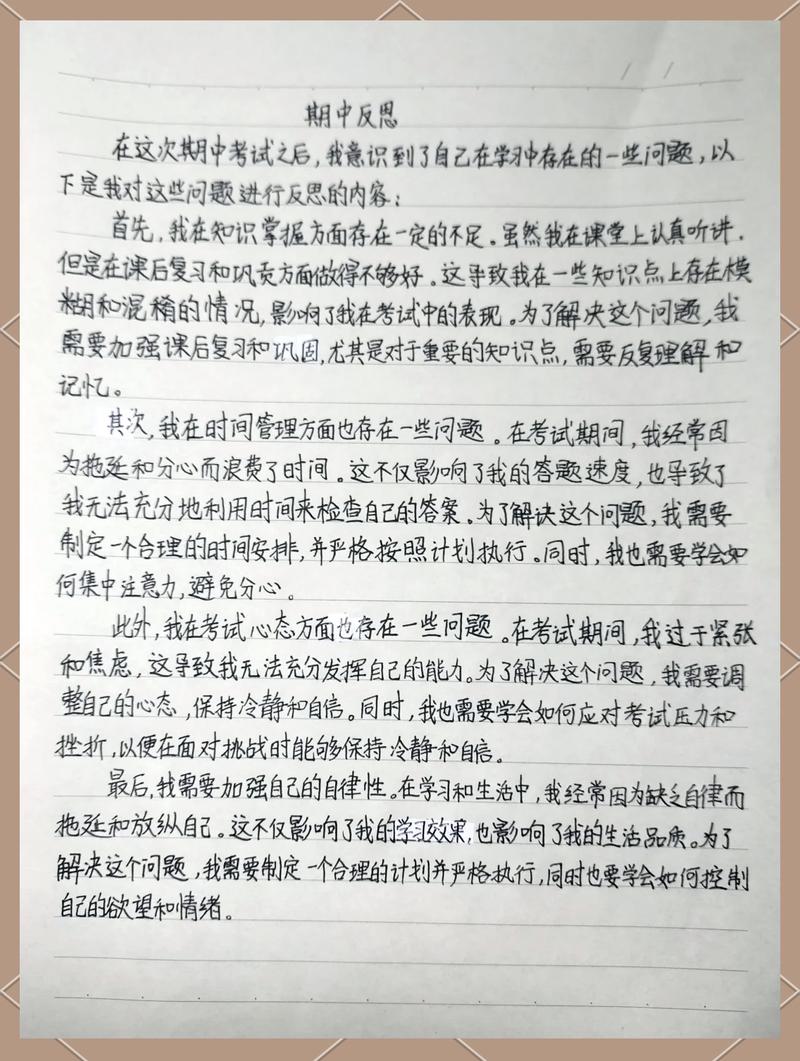 期中反思
在这次期中考试之后，我意识到了自己在学习中存在的一些问题，以
下是我对这些问题进行反思的内容：
首先，我在知识掌握方面存在一定的不足。虽然我在课堂上认真听讲．
但是在课后复习和巩贡方面做得不够好。这导致我在一些知识点上存在模
糊和混稍的情况，影响了我在考试中的表现。为了解决这个问题，我
需要加强课后复习和巩固，尤其是对于重要的知识点，需要反复理解和
记忆。
其次，我在时间管理方面也存在一些问题。在考试期间，我经常因
为拖延和分心而浪费了时间。这不仅影响了我的答题速度，也导致了
我无法充分地利用时间来检查自己的答案。为了解决这个问题，我需要
制定一个合理的时间安排，并严格按照计划执行。同时，我也需要学会如
何集中注意力，避免分心。
此外，我在考试心态方面也存在一些问题。在考试期间，我过于紧张
和焦虑，这导致我无法充分发挥自己的能力。为了解决这个问题，我需要调
整自己的心态，保持冷静和自信。同时，我也需要学会如何应对考试压力和
挫折，以便在面对挑战时能够保持冷静和自信。
最后，我需要加强自己的自律性。在学习和生活中，我经常因为缺乏自律而
拖延和放纵自己。这不仅影响了我的学习效果，也影响了我的生活品质。为了
解决这个问题，我需要制定一个合理的计划并严格执行，同时也要学会如何控制
自己的欲望和情绪。